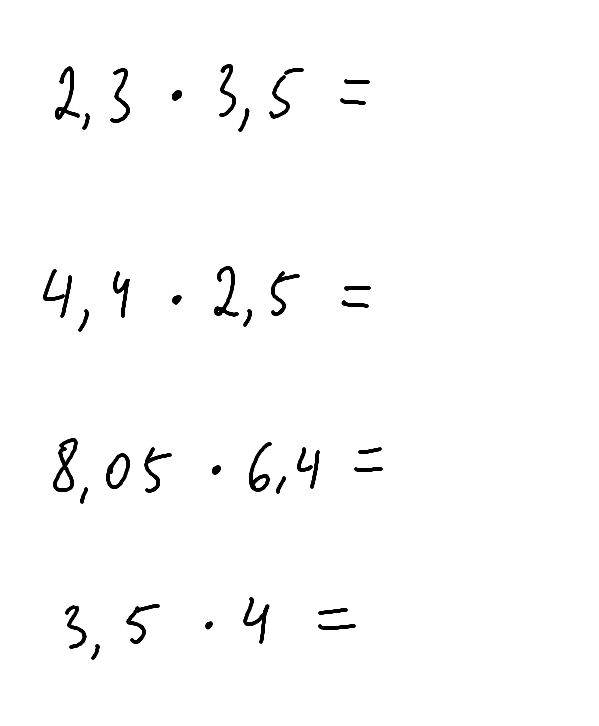 2,3 · 3,5 =
4,4 · 2,5 =
8,05 · 6,4 =
3,5 · 4 =